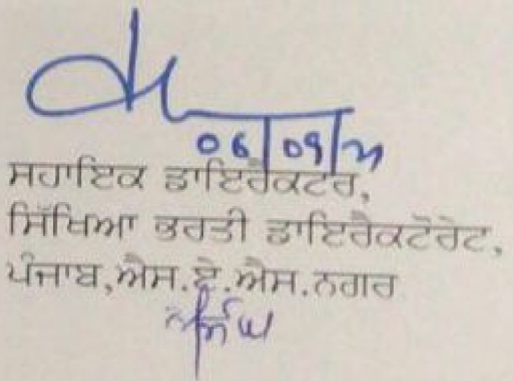 06/09/21
ਸਹਾਇਕ ਡਾਇਰੈਕਟਰ,
ਸਿੱਖਿਆ ਭਰਤੀ ਡਾਇਰੈਕਟੋਰੇਟ,
ਪੰਜਾਬ,ਐਸ.ਏ.ਐਸ.ਨਗਰ